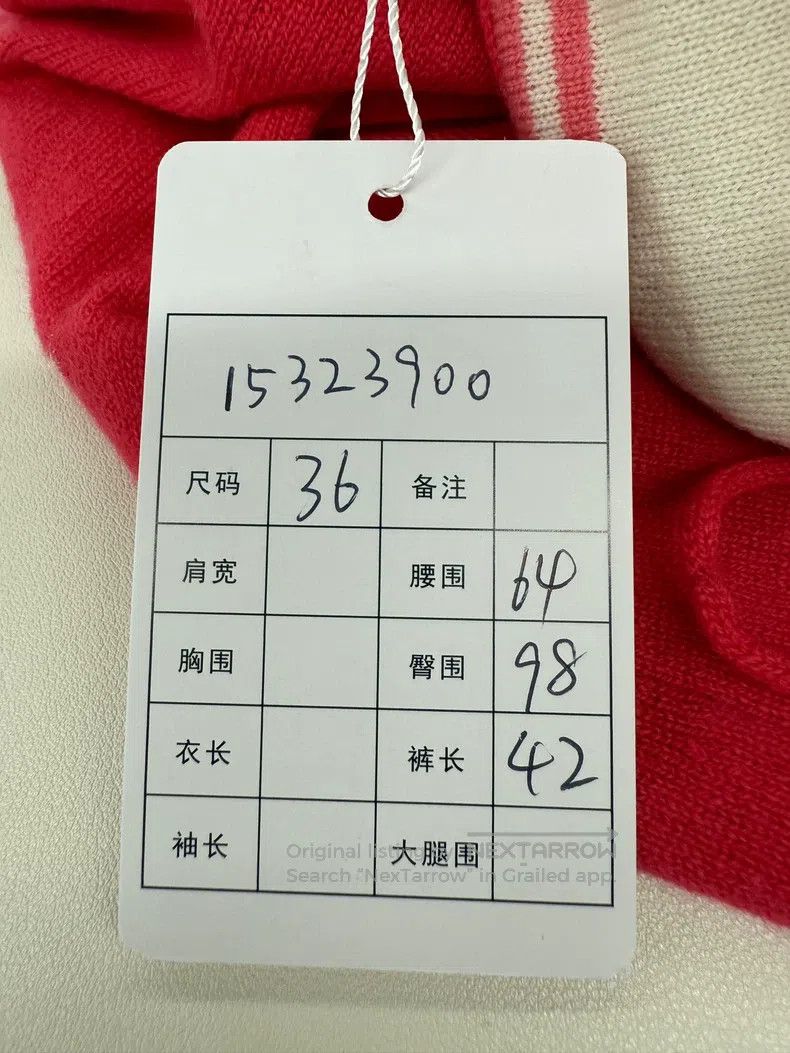 15323900
尺码 36 备注
肩宽 腰围 64
胸围 臀围 98
衣长 裤长 42
袖长 大腿围
Original listing by NEXTARROW
Search "NexTarrow" in Grailed app.